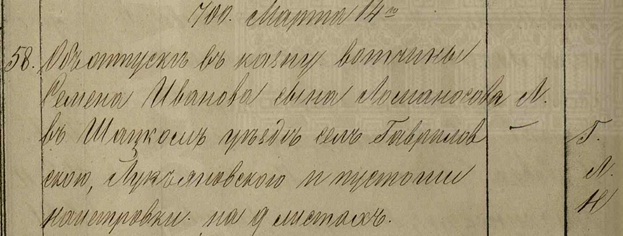 700. Марта 14го
58. Объ отпускѣ въ казну вотчины
Семена Иванова сына Ломаносова Л.
въ Шацкомъ уѣздѣ селъ Гаврилов Г.
скою, Лукъяновскою и пустоши Л.
на 9 листахъ. Н